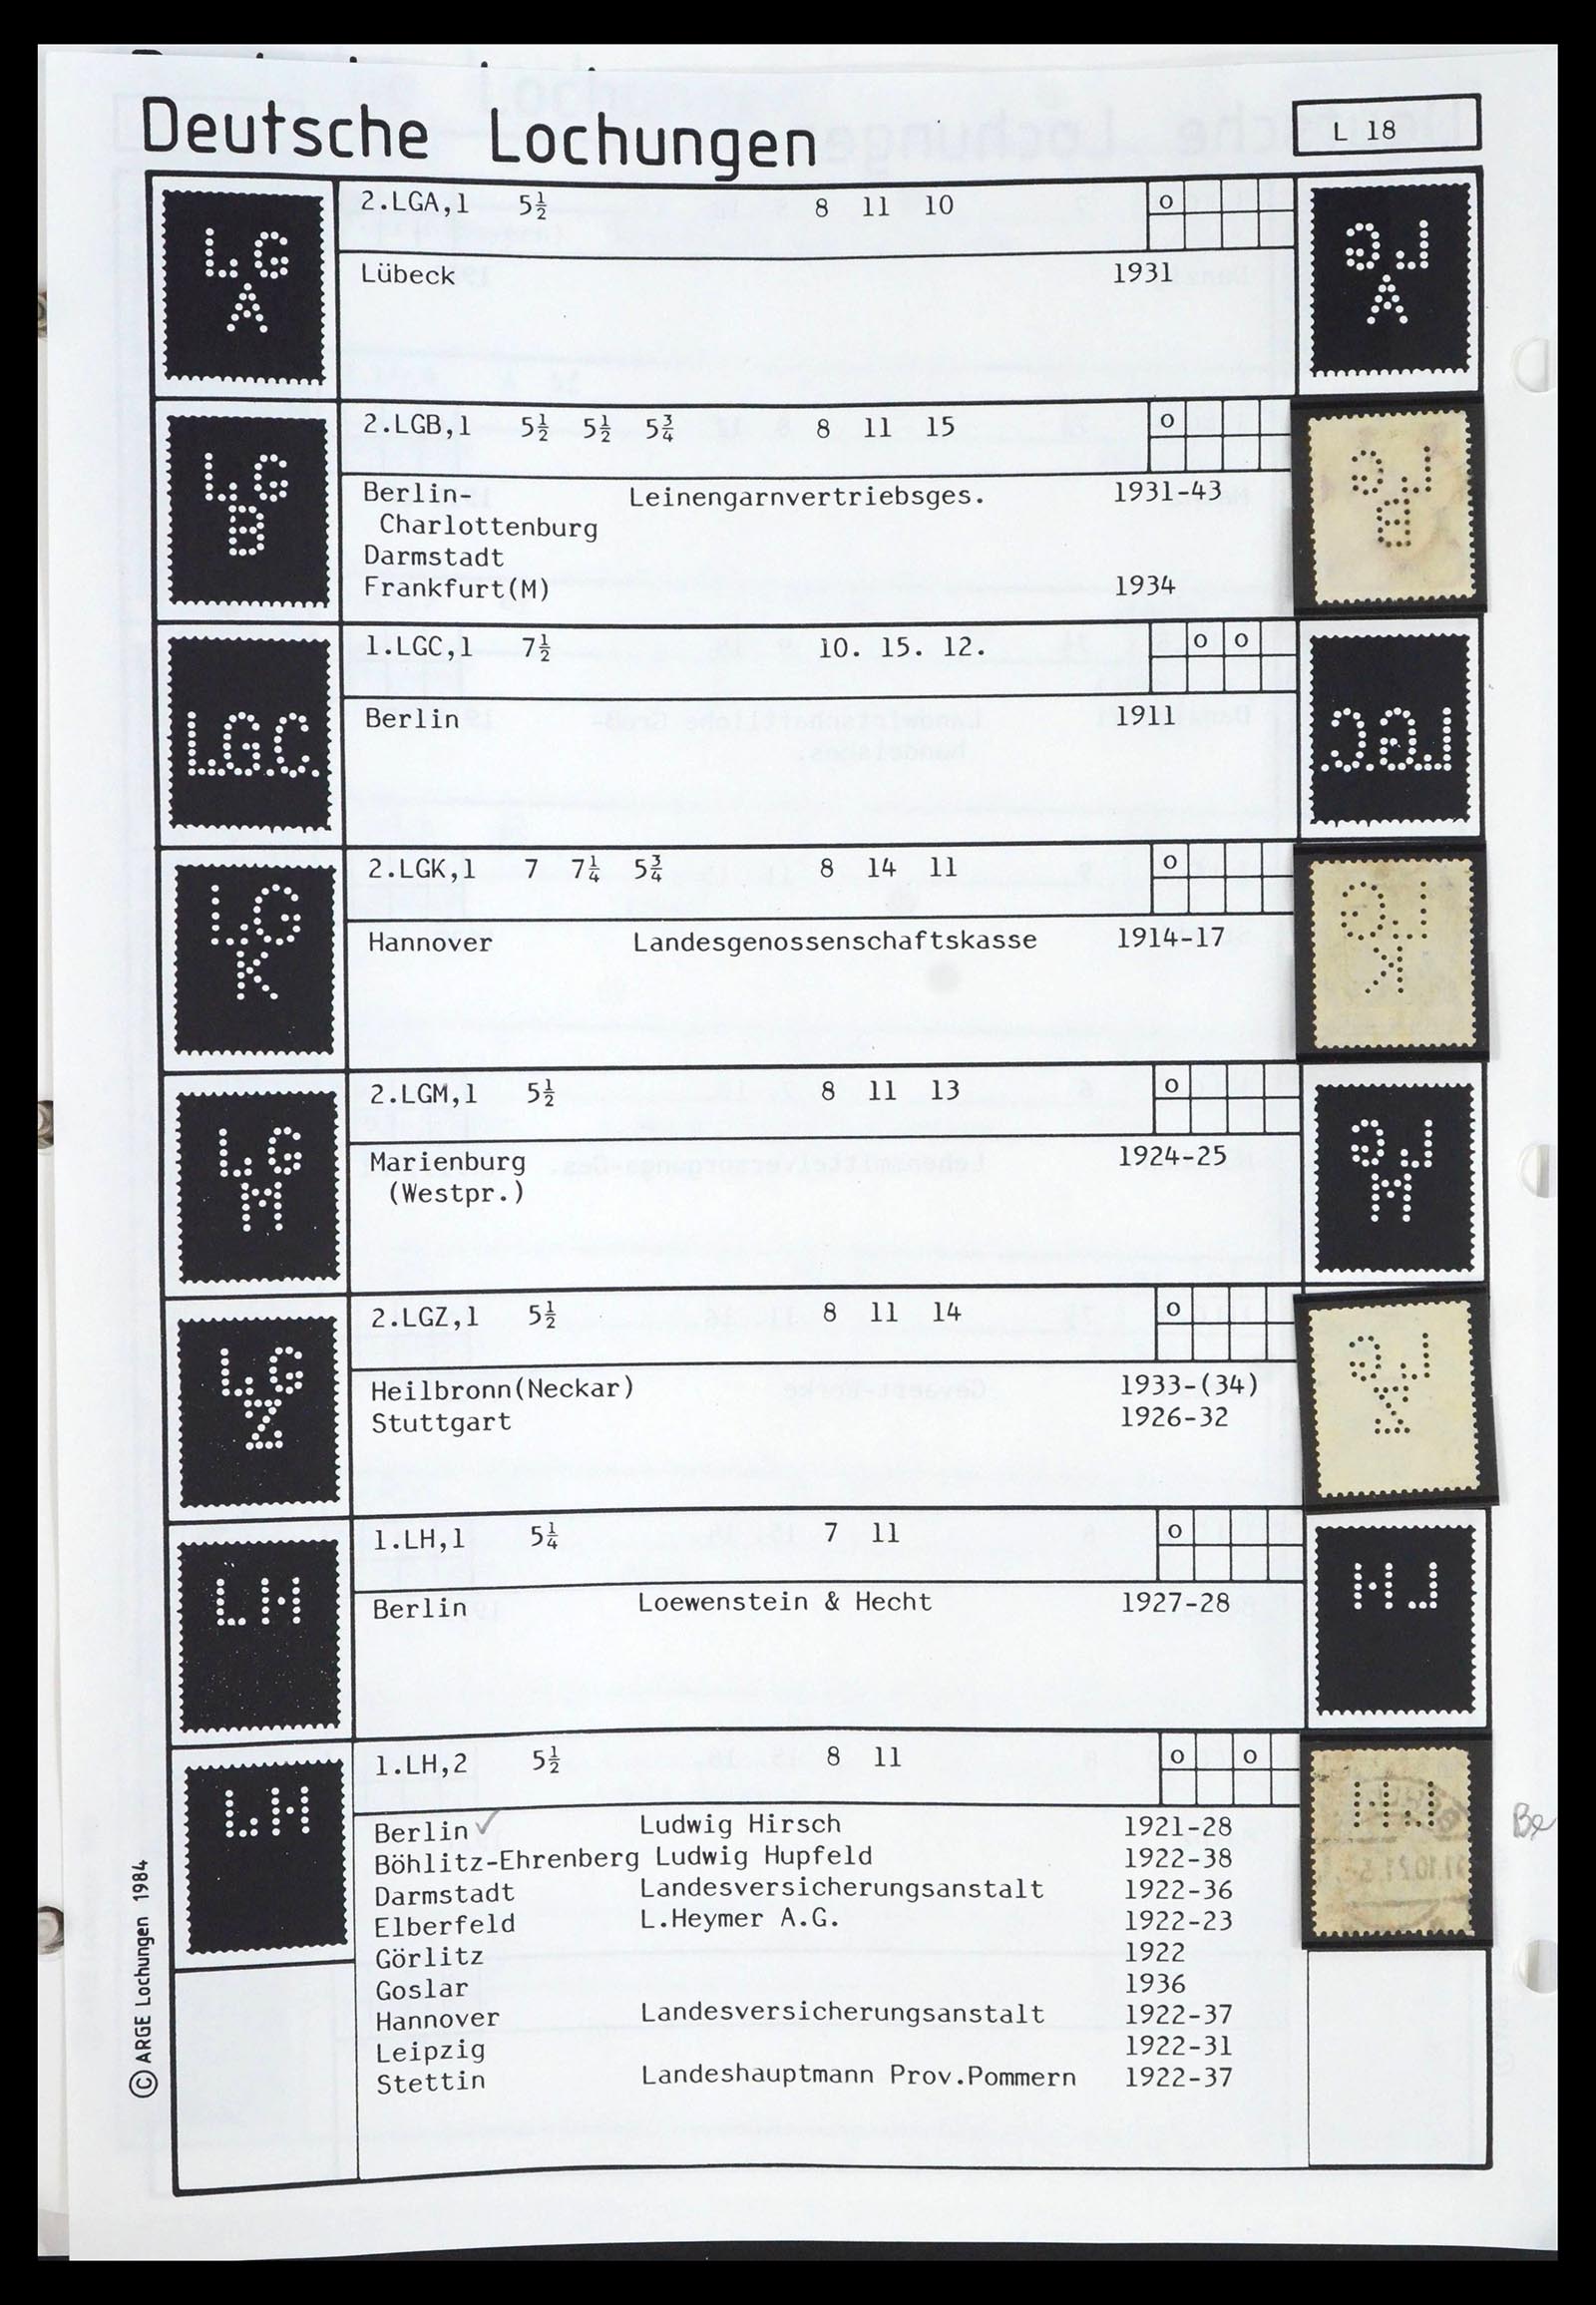 Deutsche Lochungen
L 18
LG
A
2.LGA,1 5½ 8 11 10 o
Lübeck 1931
LG
A
LG
B
2.LGB,1 5½ 5½ 5¾ 8 11 15 o
Berlin- Leinengarnvertriebsges. 1931-43
Charlottenburg
Darmstadt
Frankfurt(M) 1934
LG
B
L.G.C.
1.LGC,1 7½ 10. 15. 12. o o
Berlin 1911
L.G.C.
LG
K
2.LGK,1 7 7¼ 5¾ 8 14 11 o
Hannover Landesgenossenschaftskasse 1914-17
LG
K
LG
M
2.LGM,1 5½ 8 11 13 o
Marienburg 1924-25
(Westpr.)
LG
M
LG
Z
2.LGZ,1 5½ 8 11 14 o
Heilbronn(Neckar) 1933-(34)
Stuttgart 1926-32
LG
Z
LH
1.LH,1 5¼ 7 11 o
Berlin Loewenstein & Hecht 1927-28
LH
LH
1.LH,2 5½ 8 11 o o
Berlin ✓ Ludwig Hirsch 1921-28
Böhlitz-Ehrenberg Ludwig Hupfeld 1922-38
Darmstadt Landesversicherungsanstalt 1922-36
Elberfeld L.Heymer A.G. 1922-23
Görlitz 1922
Goslar 1936
Hannover Landesversicherungsanstalt 1922-37
Leipzig 1922-31
Stettin Landeshauptmann Prov.Pommern 1922-37
LH
Be
© ARGE Lochungen 1984